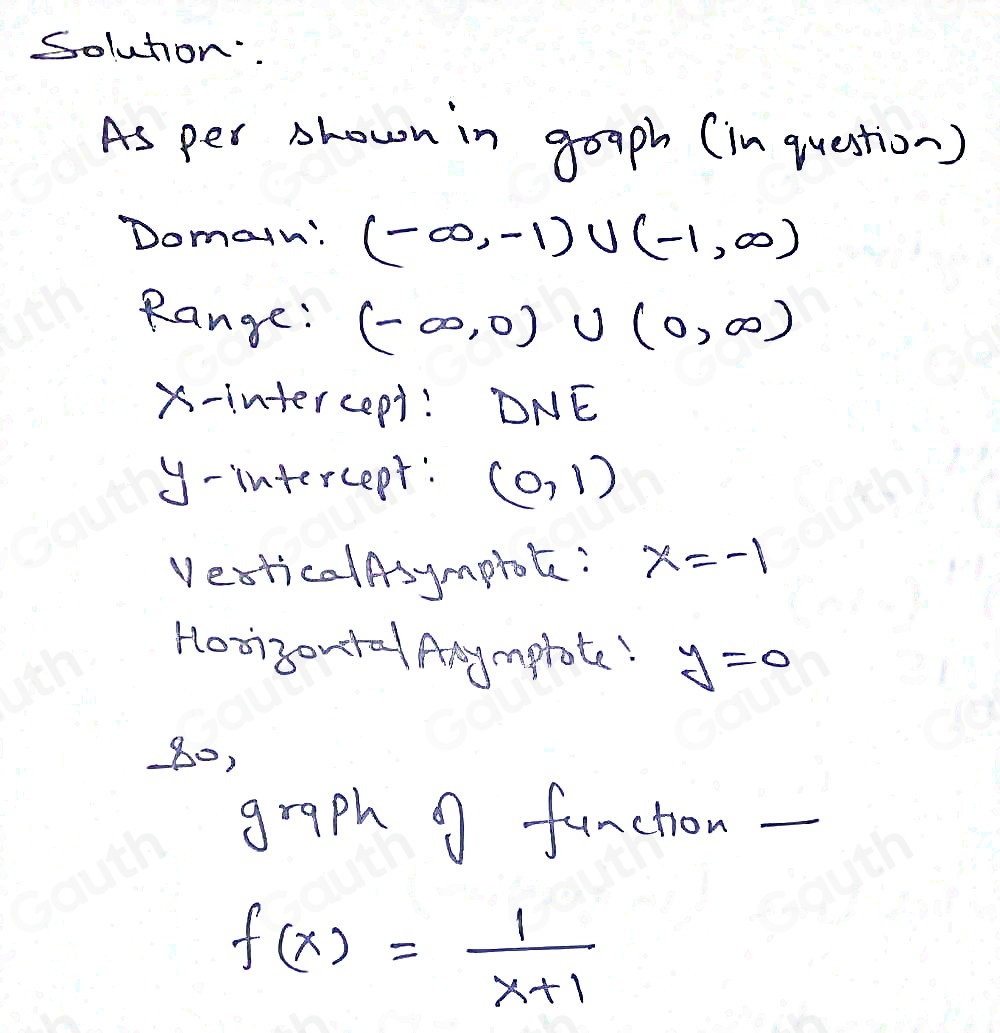 Solution:.
As per shown in graph (in question)
Domain: (-∞,-1) U (-1,∞)
Range: (-∞,0) U (0,∞)
x-intercept: DNE
y-intercept: (0,1)
Vertical Asymptote: x=-1
Horizontal Asymptote: y=0
So,
graph of function —
f(x) = 1/(x+1)